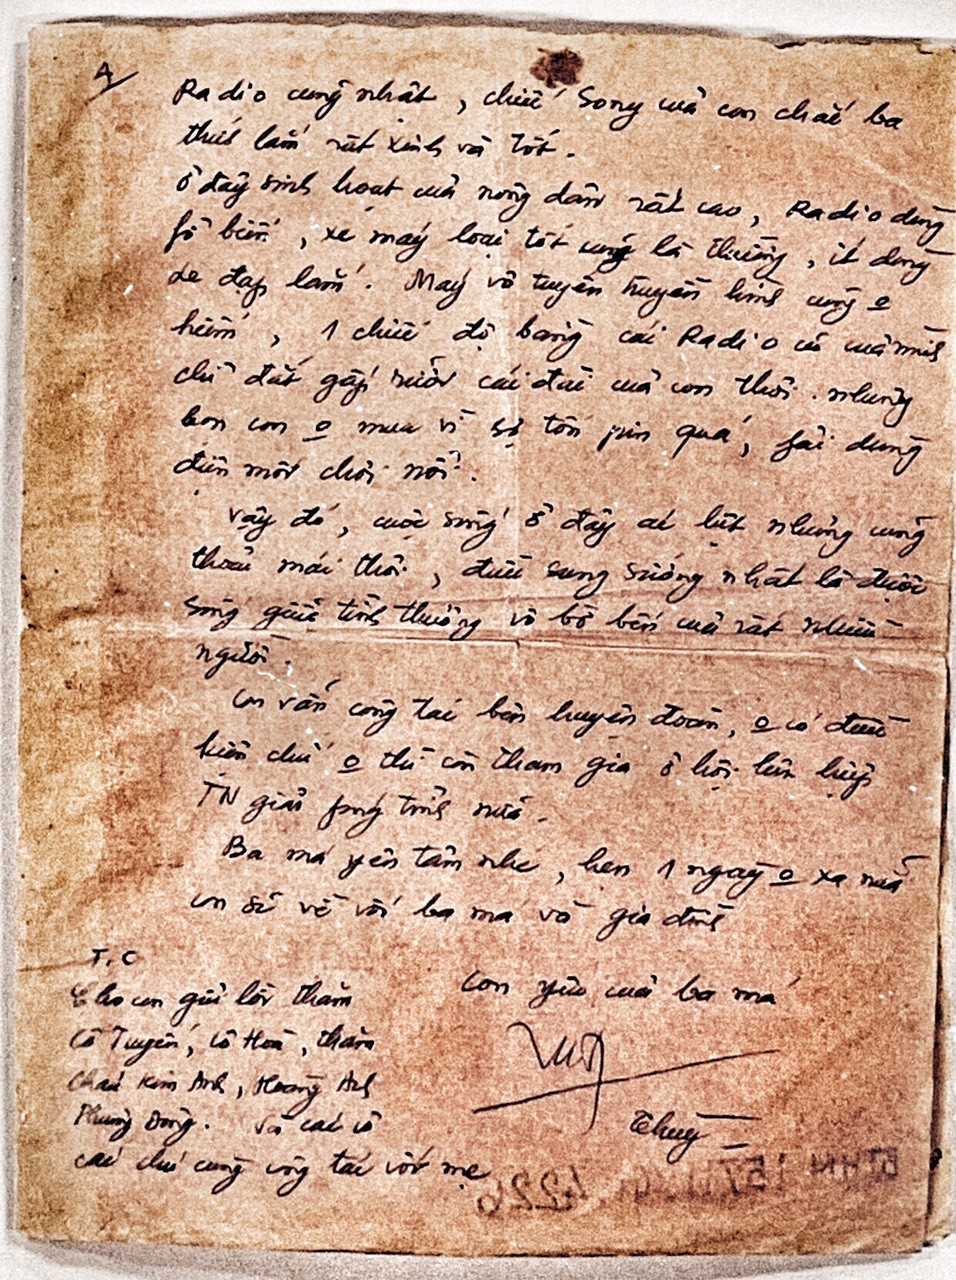 4/
Radio cũng nhất, chiếc Sony của con chắc ba
thích lắm rất xinh và tốt.
ở đây sinh hoạt của nông dân rất cao, Radio dùng
fổ biến, xe máy loại tốt cũng là thường, ít dùng
xe đạp lắm. Máy vô tuyến truyền hình cũng o
hiếm, 1 chiếc độ bằng cái Radio cũ của mình
chỉ đắt gấp rưỡi cái đài của con thôi. nhưng
bọn con o mua vì sợ tốn pin quá, fải dùng
điện mới chơi nổi.
Vậy đó, cuộc sống ở đây ác liệt nhưng cũng
thoải mái thôi, điều sung sướng nhất là được
sống giữa tình thương vô bờ bến của rất nhiều
người.
con vẫn công tác bên huyện đoàn, o có điều
kiện chứ o thì còn tham gia ở hội liên hiệp
TN giải fóng tỉnh nữa.
Ba má yên tâm nhé, hẹn 1 ngày o xa nữa
con sẽ về với ba má và gia đình
Con yêu của ba má
Thuỳ
T.C
Cho con gửi lời thăm
Cô Tuyến, cô Hoà, thăm
cháu Kim Anh, Hoàng Anh
Phương Đông. Và các cô
các chú cùng công tác với mẹ
4226